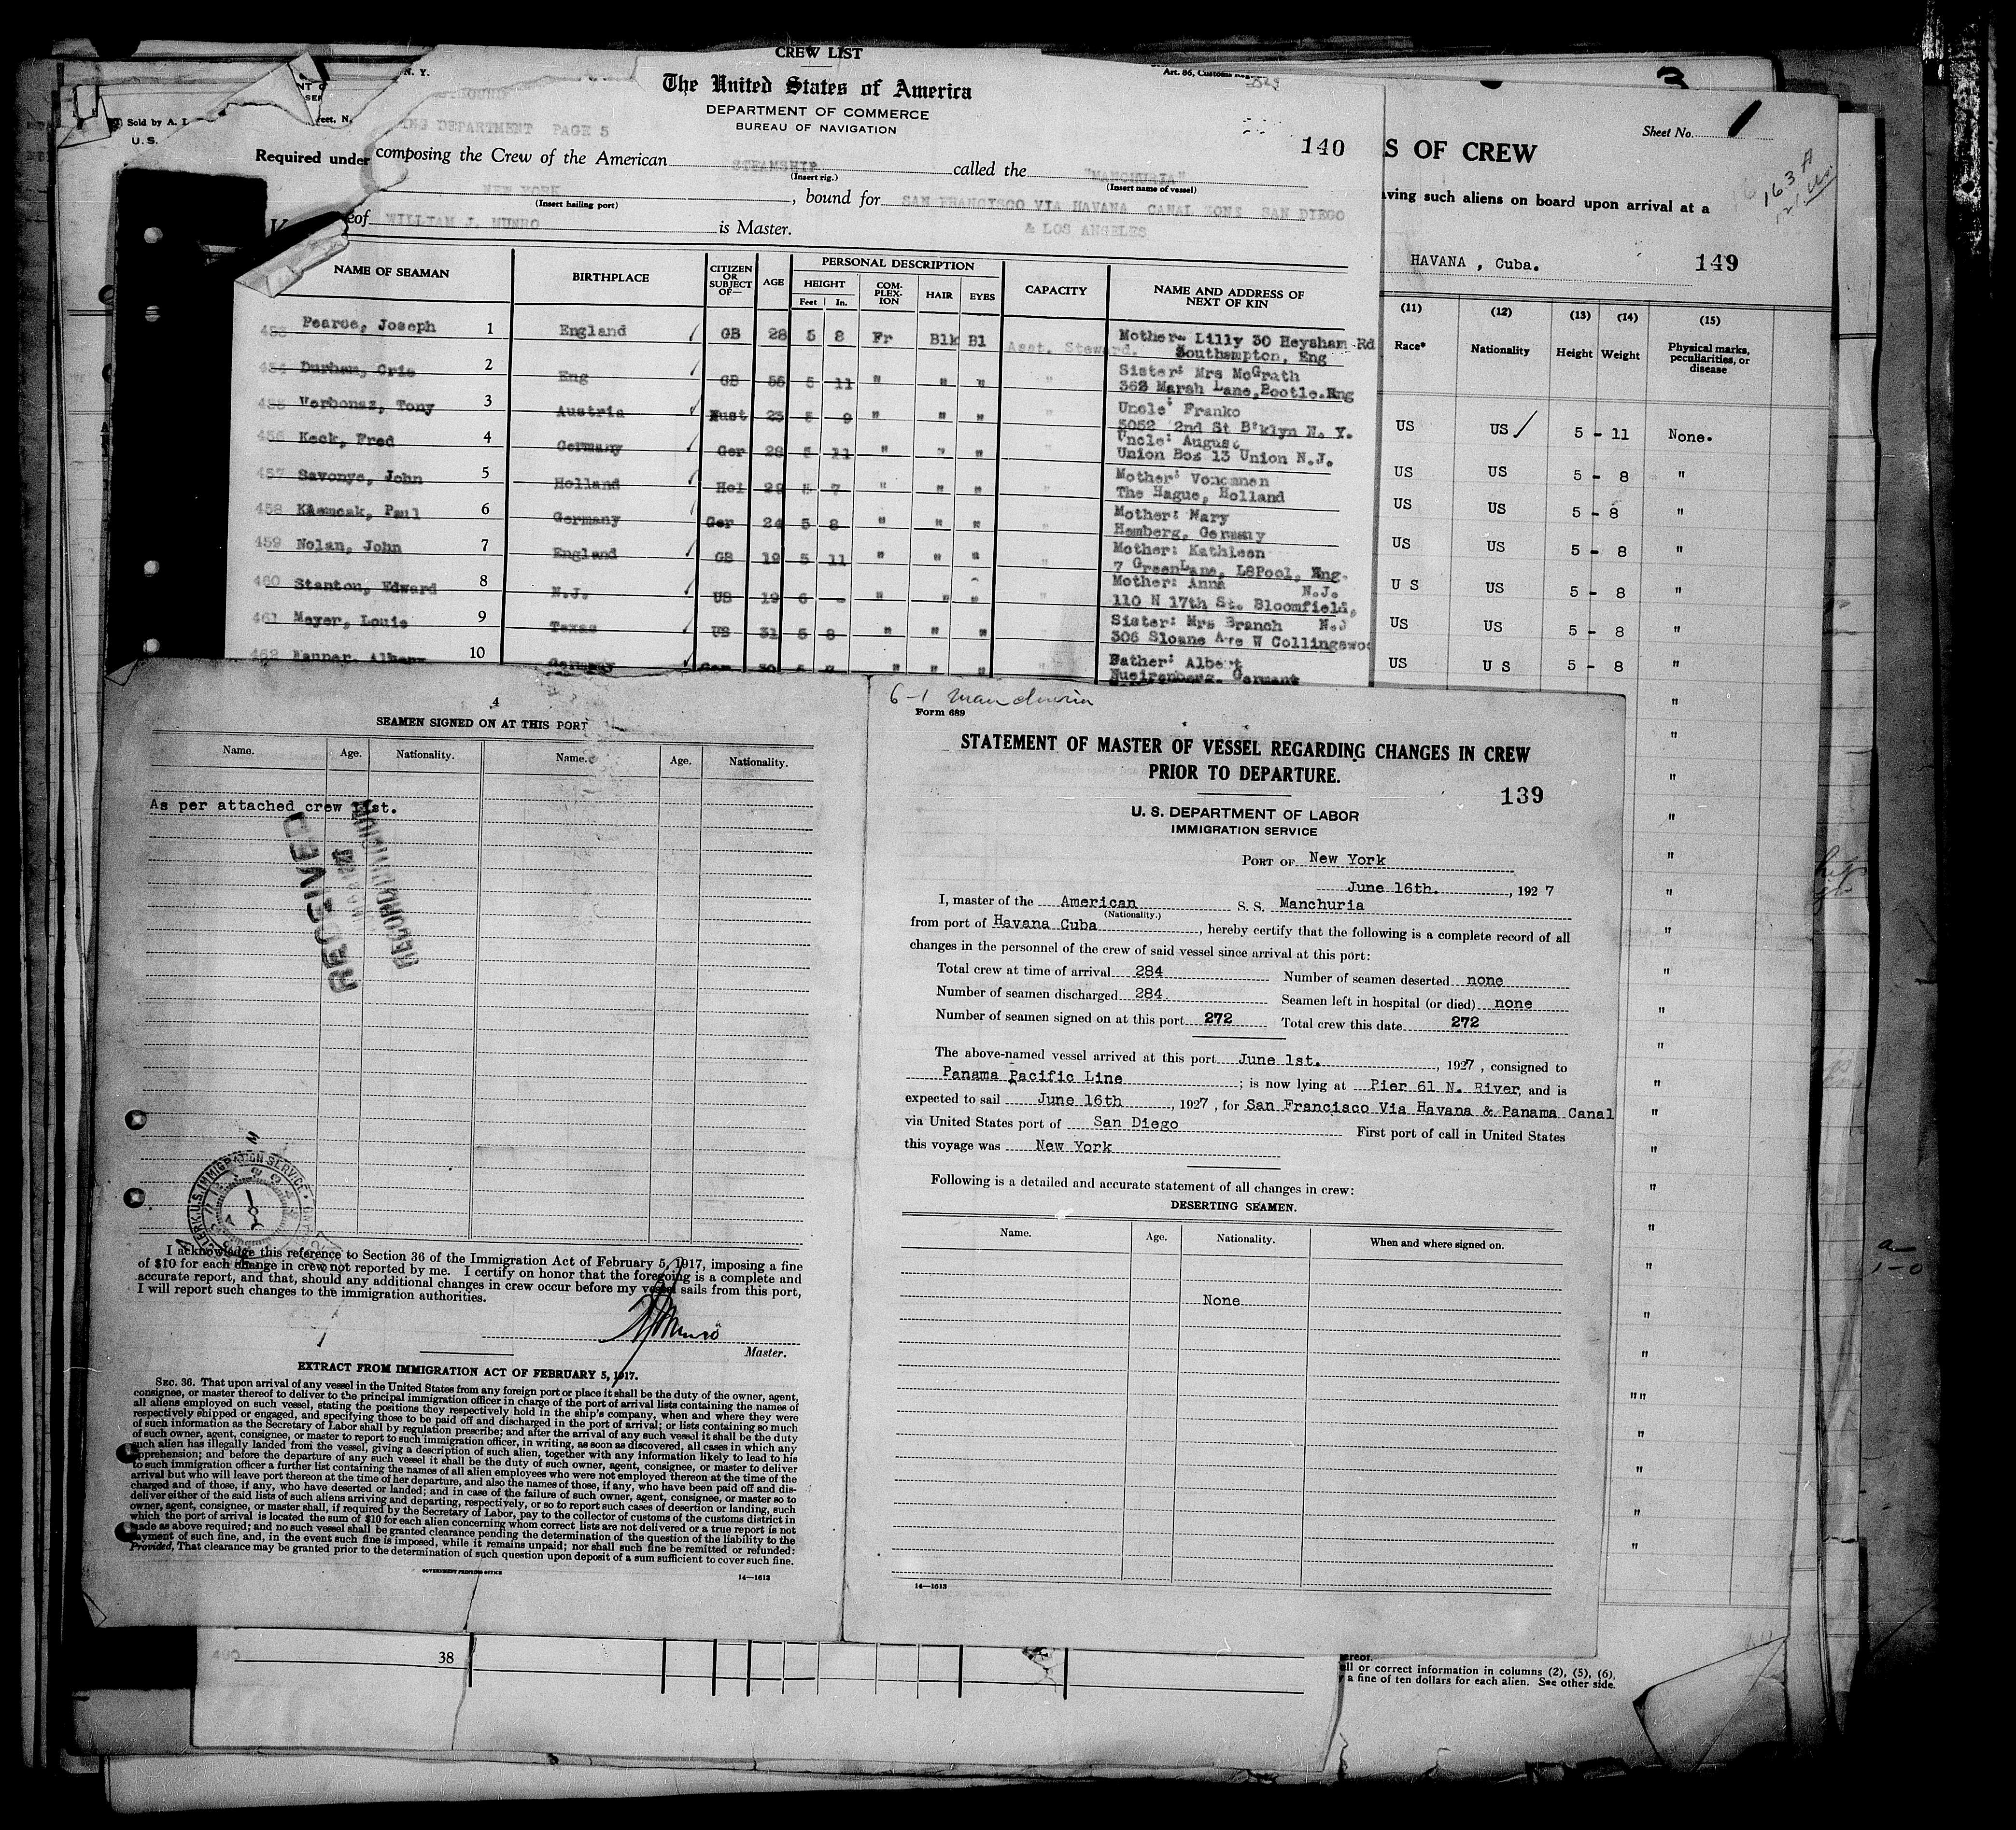 CREW LIST
Art. 86, Customs
The United States of America
DEPARTMENT OF COMMERCE
BUREAU OF NAVIGATION
N. Y.
Sold by A. I.
U. S.
ING DEPARTMENT PAGE 5
140
Required under composing the Crew of the American STEAMSHIP called the "MANCHURIA"
(Insert rig.) (Insert name of vessel)
NEW YORK, bound for SAN FRANCISCO VIA HAVANA CANAL ZONE SAN DIEGO
(Insert hailing port)
of WILLIAM J. MUNRO is Master. & LOS ANGELES
NAME OF SEAMAN BIRTHPLACE CITIZEN OR SUBJECT OF— AGE PERSONAL DESCRIPTION CAPACITY NAME AND ADDRESS OF NEXT OF KIN
HEIGHT COM-PLEX-ION HAIR EYES
Feet In.
453 Pearce, Joseph 1 England GB 28 5 8 Fr Blk Bl Asst. Steward. Mother- Lilly 30 Heysham Rd
Southampton, Eng
454 Durham, Cris 2 Eng GB 56 5 11 " " " " Sister: Mrs McGrath
362 Marsh Lane, Bootle. Eng
455 Verbonaz, Tony 3 Austria Aust 25 5 9 " " " " Uncle: Franko
5052 2nd St B'klyn N. Y.
456 Keck, Fred 4 Germany Ger 28 5 11 " " " " Uncle: August
Union Box 13 Union N.J.
457 Savonye, John 5 Holland Hol 29 5 7 " " " " Mother:
The Hague, Holland
458 Paul 6 Germany Ger 24 5 8 " " " Mother: Mary
Hamberg, Germany
459 Nolan, John 7 England GB 19 5 11 " " " " Mother: Kathleen
7 GreenLane, L8Pool, Eng.
460 Stanton, Edward 8 N.J. US 19 6 - " " " " Mother: Anna N.J.
110 N 17th St. Bloomfield,
461 Meyer, Louis 9 Texas US 31 5 8 " " " Sister: Mrs Branch N.J
306 Sloane Ave W Collingswoo
462 10 Germany Ger 30 " " " " Father: Albert
490 38
3
Sheet No. 1
S OF CREW
163 A
aving such aliens on board upon arrival at a
HAVANA, Cuba. 149
(11) (12) (13) (14) (15)
Race* Nationality Height Weight Physical marks, peculiarities, or disease
US US 5 - 11 None.
US US 5 - 8 "
US US 5 - 8 "
US US 5 - 8 "
U S US 5 - 8 "
US US 5 - 8 "
US U S 5 - 8 "
ereof.
all or correct information in columns (2), (5), (6),
a fine of ten dollars for each alien. See other side.
4
SEAMEN SIGNED ON AT THIS PORT
Name. Age. Nationality. Name. Age. Nationality.
As per attached crew list.
RECEIVED
RECORD DIVISION
CLERK, U.S. IMMIGRATION SERVICE
I acknowledge this reference to Section 36 of the Immigration Act of February 5, 1917, imposing a fine
of $10 for each change in crew not reported by me. I certify on honor that the foregoing is a complete and
accurate report, and that, should any additional changes in crew occur before my vessel sails from this port,
I will report such changes to the immigration authorities.
Munro
Master.
EXTRACT FROM IMMIGRATION ACT OF FEBRUARY 5, 1917.
SEC. 36. That upon arrival of any vessel in the United States from any foreign port or place it shall be the duty of the owner, agent,
consignee, or master thereof to deliver to the principal immigration officer in charge of the port of arrival lists containing the names of
all aliens employed on such vessel, stating the positions they respectively hold in the ship's company, when and where they were
respectively shipped or engaged, and specifying those to be paid off and discharged in the port of arrival; or lists containing so much
of such information as the Secretary of Labor shall by regulation prescribe; and after the arrival of any such vessel it shall be the duty
of such owner, agent, consignee, or master to report to such immigration officer, in writing, as soon as discovered, all cases in which any
such alien has illegally landed from the vessel, giving a description of such alien, together with any information likely to lead to his
apprehension; and before the departure of any such vessel it shall be the duty of such owner, agent, consignee, or master to deliver
to such immigration officer a further list containing the names of all alien employees who were not employed thereon at the time of the
arrival but who will leave port thereon at the time of her departure, and also the names of those, if any, who have been paid off and dis-
charged and of those, if any, who have deserted or landed; and in case of the failure of such owner, agent, consignee, or master so to
deliver either of the said lists of such aliens arriving and departing, respectively, or so to report such cases of desertion or landing, such
owner, agent, consignee, or master shall, if required by the Secretary of Labor, pay to the collector of customs of the customs district in
which the port of arrival is located the sum of $10 for each alien concerning whom correct lists are not delivered or a true report is not
made as above required; and no such vessel shall be granted clearance pending the determination of the question of the liability to the
payment of such fine, and, in the event such fine is imposed, while it remains unpaid; nor shall such fine be remitted or refunded:
Provided, That clearance may be granted prior to the determination of such question upon deposit of a sum sufficient to cover such fine.
GOVERNMENT PRINTING OFFICE 14—1613
6-1 Manchuria
Form 689
STATEMENT OF MASTER OF VESSEL REGARDING CHANGES IN CREW
PRIOR TO DEPARTURE.
139
U. S. DEPARTMENT OF LABOR
IMMIGRATION SERVICE
PORT OF New York
June 16th., 1927
I, master of the American S. S. Manchuria
(Nationality.)
from port of Havana Cuba, hereby certify that the following is a complete record of all
changes in the personnel of the crew of said vessel since arrival at this port:
Total crew at time of arrival 284 Number of seamen deserted none
Number of seamen discharged 284 Seamen left in hospital (or died) none
Number of seamen signed on at this port 272 Total crew this date 272
The above-named vessel arrived at this port June 1st., 1927, consigned to
Panama Pacific Line; is now lying at Pier 61 N. River, and is
expected to sail June 16th, 1927, for San Francisco Via Havana & Panama Canal
via United States port of San Diego First port of call in United States
this voyage was New York
Following is a detailed and accurate statement of all changes in crew:
DESERTING SEAMEN.
Name. Age. Nationality. When and where signed on.
None
14—1613